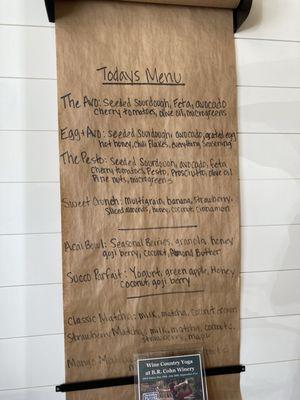 Todays Menu
The Avo: Seeded Sourdough, Feta, avocado
cherry tomatoes, olive oil, microgreens
Egg + Avo: Seeded Sourdough, avocado, grated egg
hot honey, chili flakes, everything seasoning
The Pesto: Seeded Sourdough, avocado, feta
cherry tomatoes, Pesto, Prosciutto, olive oil
Pine nuts, microgreens
Sweet Crunch: Multigrain, banana, strawberry,
Sliced almonds, honey, coconut, cinnamon
Acai Bowl: Seasonal Berries, granola, honey
goji berry, coconut, Almond Butter
Succo Parfait: Yogurt, green apple, Honey
coconut, goji berry
Classic Matcha: milk, matcha, coconut cream
Strawberry Matcha: milk, matcha, coconut,
strawberry,
Mango
Wine Country Yoga
at B.R. Cohn Winery